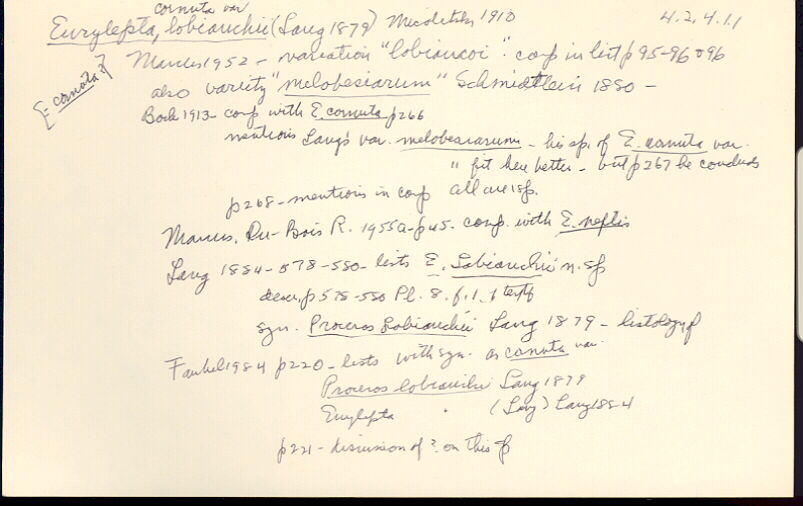 cornuta var
Eurylepta, lobianchii (Lang 1879) Micoletzky 1910 4.2.4.1.1
[= cornuta?]
Marcus 1952 - variation "lobiancoi". comp in list p 95-96 + 96
also variety "melobesiarum" Schmidtlein 1880 -
Bock 1913 - comp with E. cornuta p266
mentions Lang's var. melobesiarum - his sp. of E. cornuta var.
" fit here better - but p267 he concluds
p268 - mentions in comp all are 1 sp.
Marcus, Du-Bois R. 1955a - p45. comp. with E. neptis
Lang 1884 - 578-580 - lists E. Lobianchii n. sp
descr, p578-580 Pl. 8. f. 1, text f
syn. Proceros Lobianchii Lang 1879 - histology
Faubel 1984 p220 - lists with syn. as cornuta var.
Proceros lobianchii Lang 1879
Eurylepta " (Lang) Lang 1884
p221 - discussion of ? on this sp